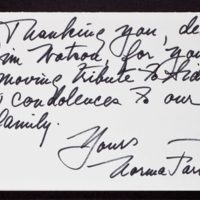 Thanking you, de
for you
moving tribute to
& condolences to our
family.
Yours
Norma